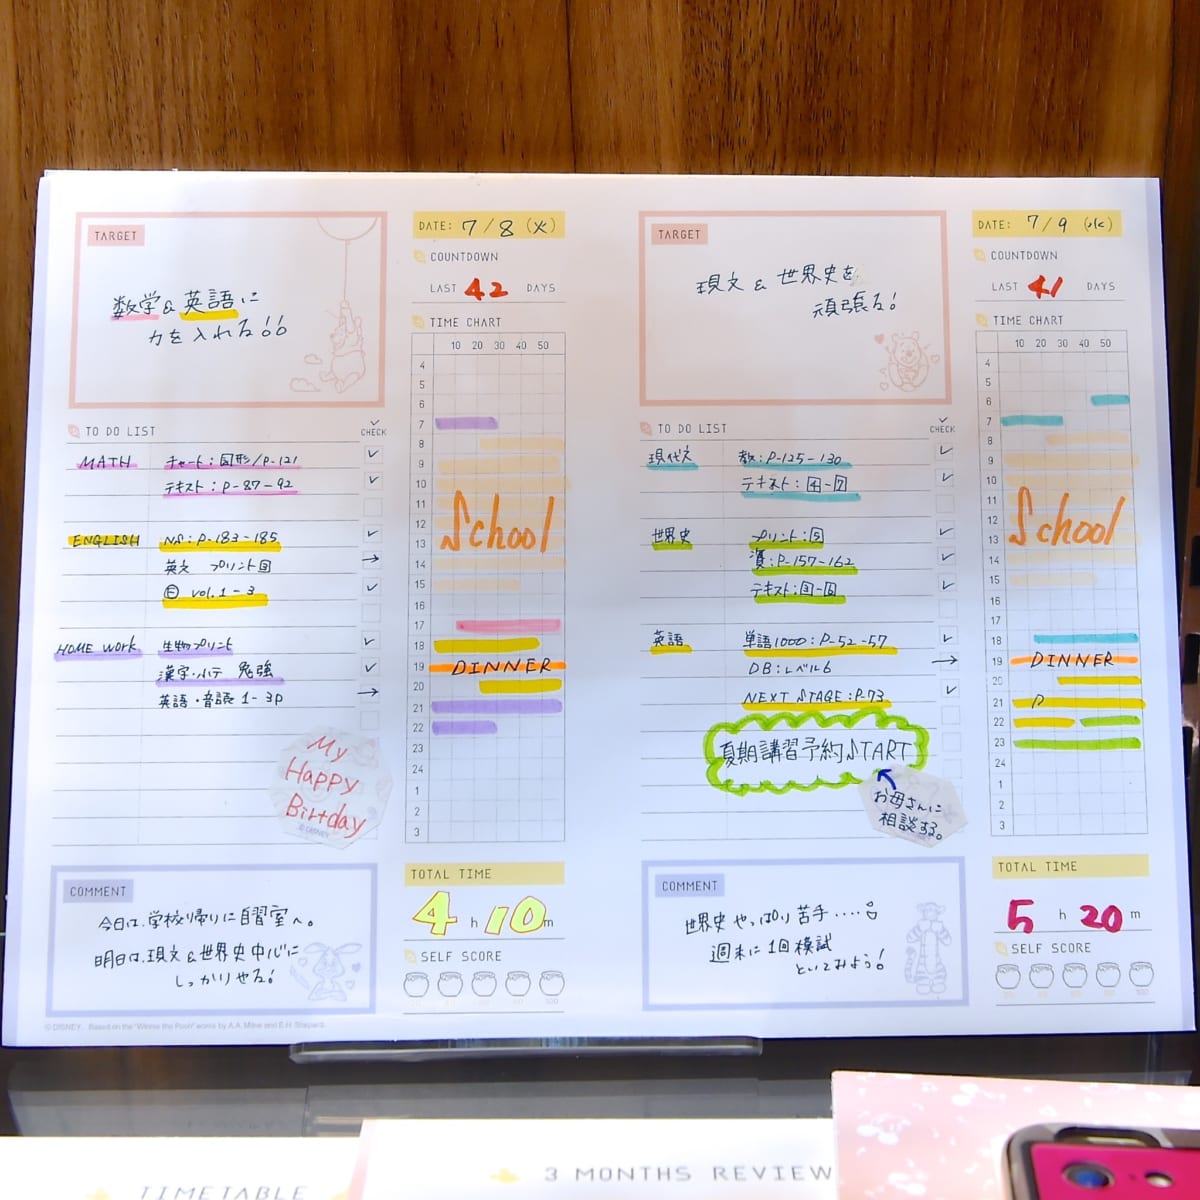 TARGET
数学&英語に
力を入れる!!
DATE: 7/8 (火)
COUNTDOWN
LAST 42 DAYS
TIME CHART
10 20 30 40 50
4
5
6
7
8
9
10
11
12
13
14
15
16
17
18
19
20
21
22
23
24
1
2
3
School
DINNER
TO DO LIST
CHECK
MATH チャート:図形/P-121
テキスト:P-87-92
ENGLISH NS:P-183-185
英文 プリント
vol.1-3
HOME work 生物プリント
漢字・小テ 勉強
英語・音読 1-3P
My
Happy
Birtday
© DISNEY
COMMENT
今日は、学校帰りに自習室へ。
明日は、現文&世界史中心に
しっかりやる!
TOTAL TIME
4h 10m
SELF SCORE
© DISNEY. Based on the "Winnie the Pooh" works by A.A. Milne and E.H. Shepard.
TARGET
現文&世界史を
頑張る!
DATE: 7/9 (水)
COUNTDOWN
LAST 41 DAYS
TIME CHART
10 20 30 40 50
4
5
6
7
8
9
10
11
12
13
14
15
16
17
18
19
20
21
22
23
24
1
2
3
School
DINNER
TO DO LIST
CHECK
現代文 教:P-125-130
テキスト:4-7
世界史 プリント:5
資:P-157-162
テキスト:
英語 単語1000:P-52-57
DB:レベル6
NEXT STAGE:P-73
夏期講習予約START
お母さんに
相談する。
COMMENT
世界史やっぱり苦手....
週末に1回模試
といてみよう!
TOTAL TIME
5h 20m
SELF SCORE
TIMETABLE
3 MONTHS REVIEW